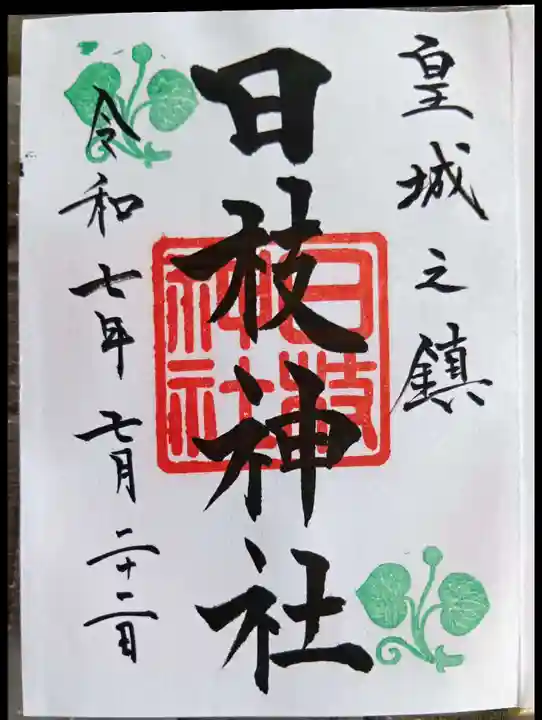 皇城之鎮
日枝神社
日枝神社
令和七年七月二十二日